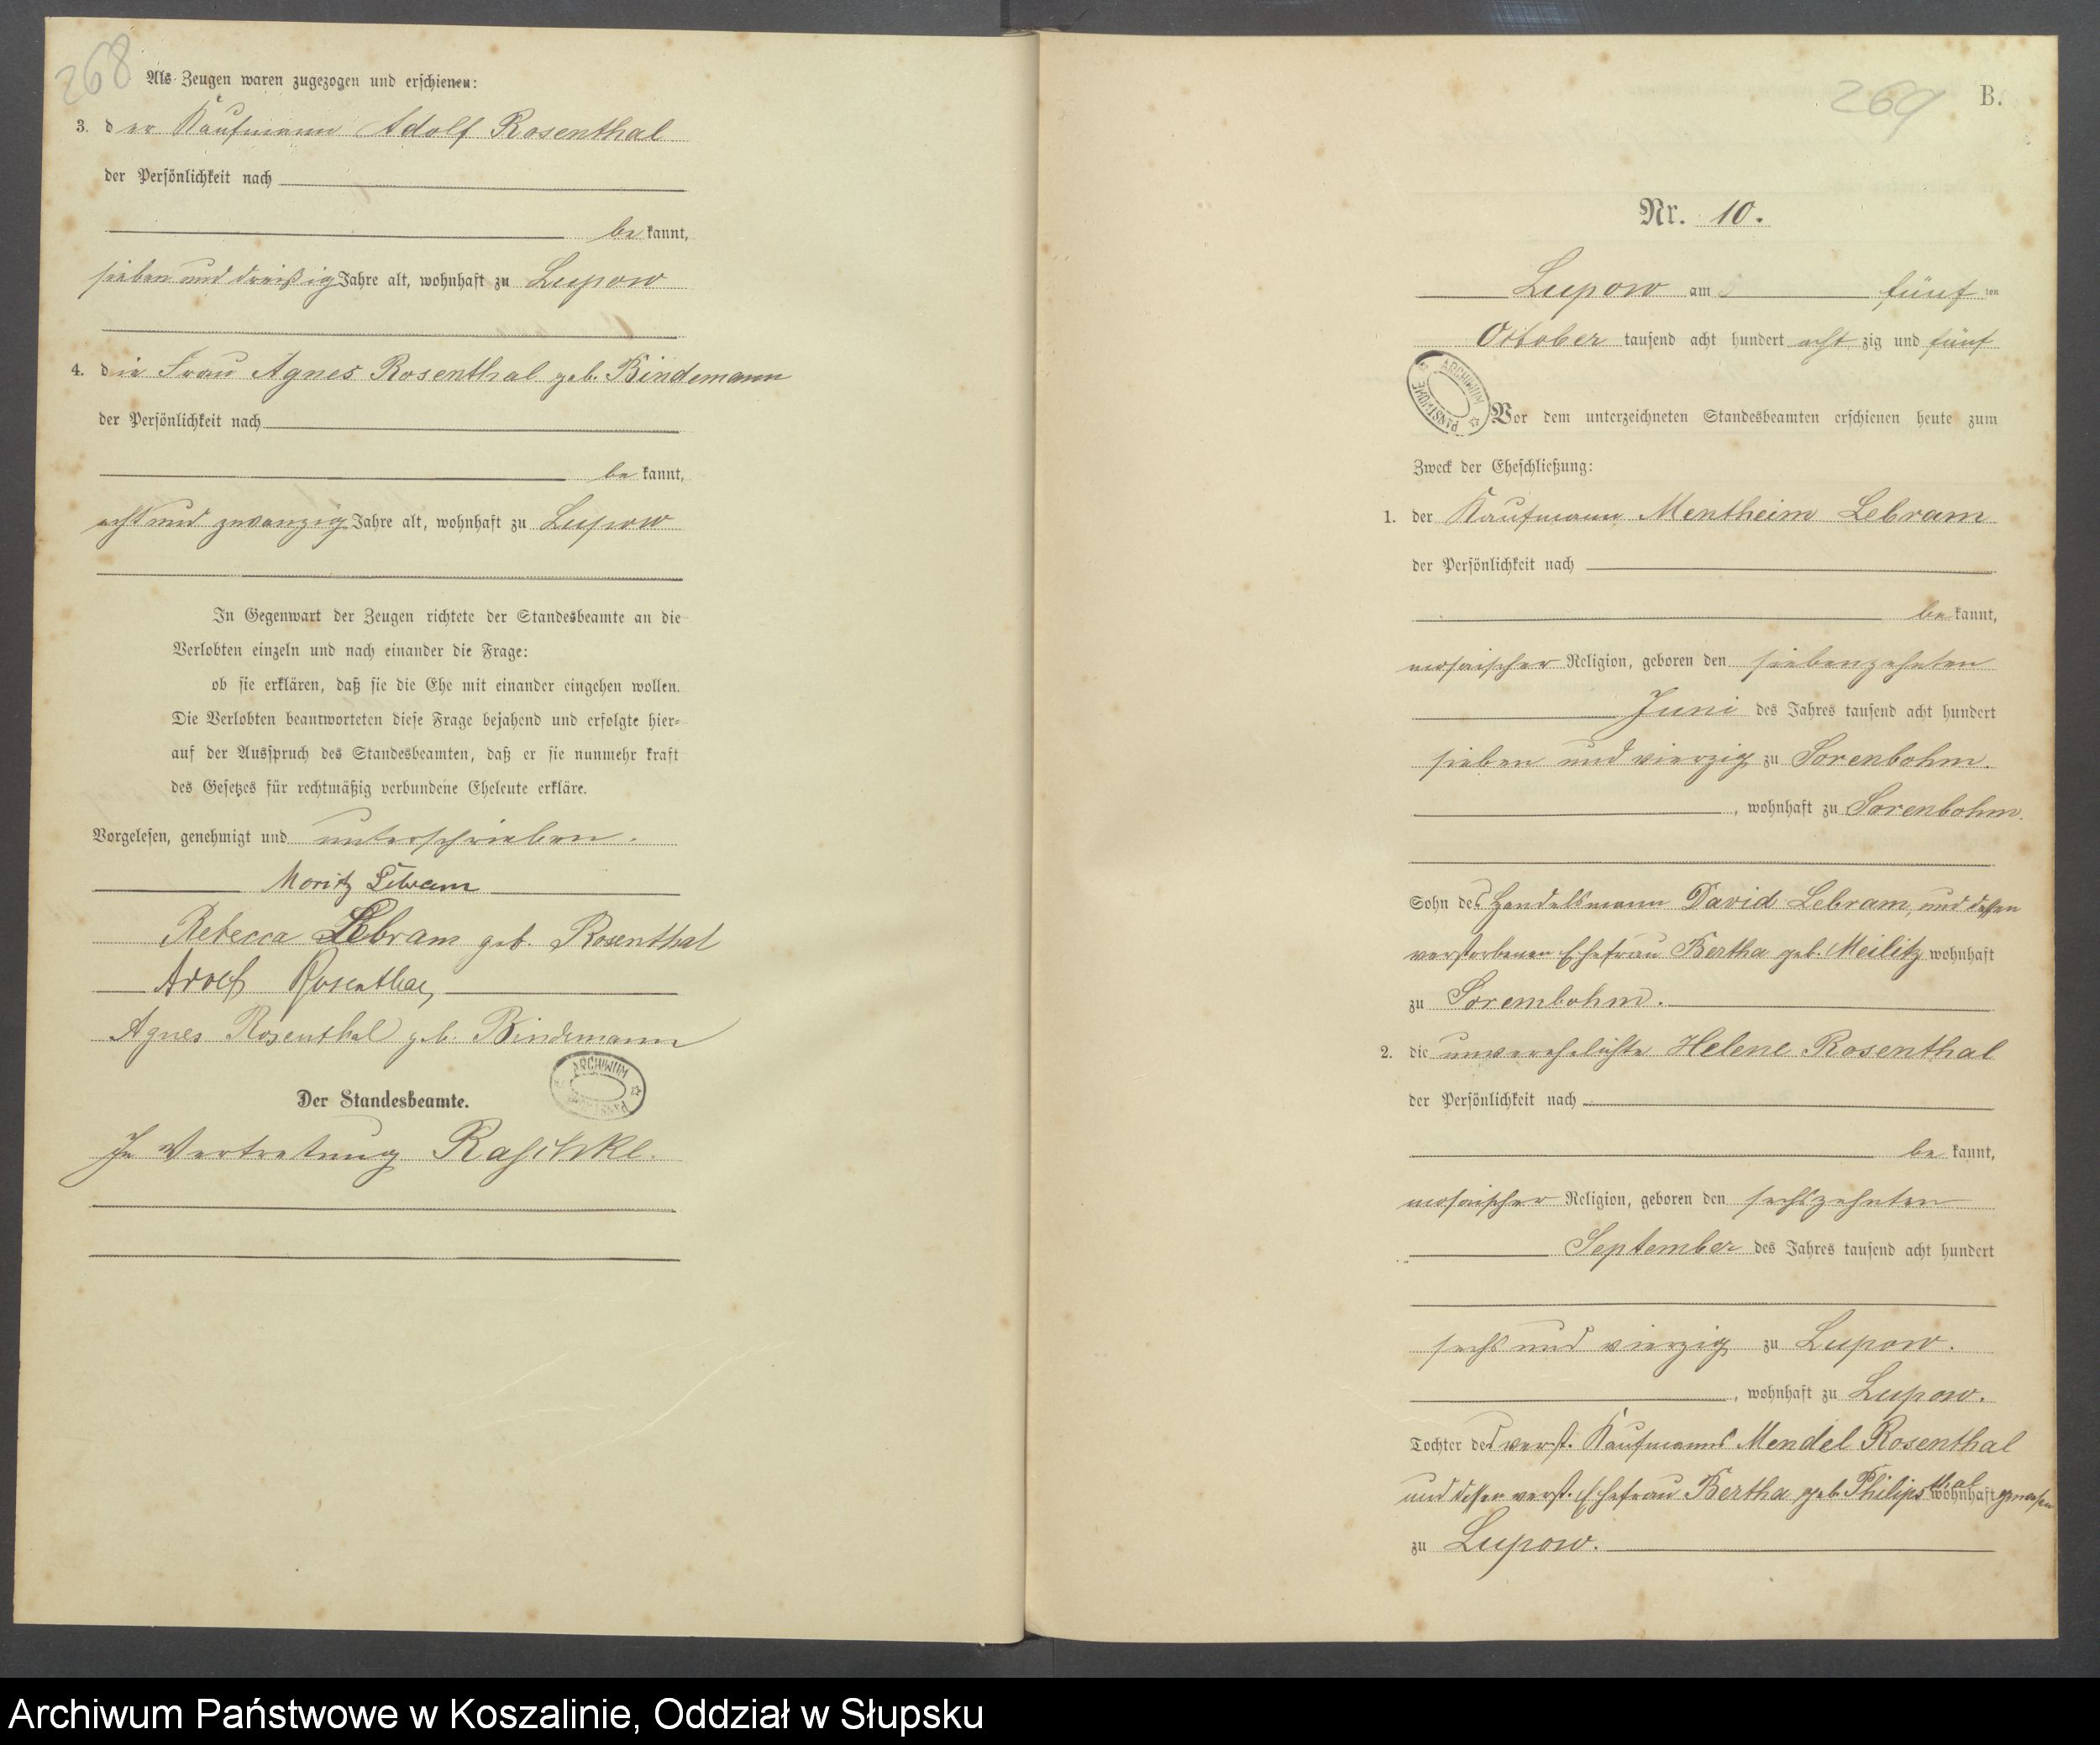 268
Als Zeugen waren zugezogen und erschienen:
3. der Kaufmann Adolf Rosenthal
der Persönlichkeit nach
be kannt,
sieben und dreißig Jahre alt, wohnhaft zu Lupow
4. die Frau Agnes Rosenthal geb. Bindemann
der Persönlichkeit nach
be kannt,
acht und zwanzig Jahre alt, wohnhaft zu Lupow
In Gegenwart der Zeugen richtete der Standesbeamte an die
Verlobten einzeln und nach einander die Frage:
ob sie erklären, daß sie die Ehe mit einander eingehen wollen.
Die Verlobten beantworteten diese Frage bejahend und erfolgte hier-
auf der Ausspruch des Standesbeamten, daß er sie nunmehr kraft
des Gesetzes für rechtmäßig verbundene Eheleute erkläre.
Vorgelesen, genehmigt und unterschrieben.
Moritz Lebram
Rebecca Lebram geb. Rosenthal
Adolf Rosenthal
Agnes Rosenthal geb. Bindemann
ARCHIWUM PAŃSTWOWE
Der Standesbeamte.
In Vertretung Raschke.
269
B.
Nr. 10.
Lupow am fünf ten
October tausend acht hundert acht zig und fünf
ARCHIWUM PAŃSTWOWE
Vor dem unterzeichneten Standesbeamten erschienen heute zum
Zweck der Eheschließung:
1. der Kaufmann Mentheim Lebram
der Persönlichkeit nach
be kannt,
mosaischer Religion, geboren den siebenzehnten
Juni des Jahres tausend acht hundert
sieben und vierzig zu Sorenbohm.
, wohnhaft zu Sorenbohm.
Sohn des Handelsmann David Lebram, und dessen
verstorbenen Ehefrau Bertha geb. Meilitz wohnhaft
zu Sorembohm.
2. die unverehelichte Helene Rosenthal
der Persönlichkeit nach
be kannt,
mosaischer Religion, geboren den sechszehnten
September des Jahres tausend acht hundert
sechs und vierzig zu Lupow.
, wohnhaft zu Lupow.
Tochter des verst. Kaufmanns Mendel Rosenthal
und dessen verst. Ehefrau Bertha geb. Philipsthal wohnhaft gewesen
zu Lupow.
Archiwum Państwowe w Koszalinie, Oddział w Słupsku